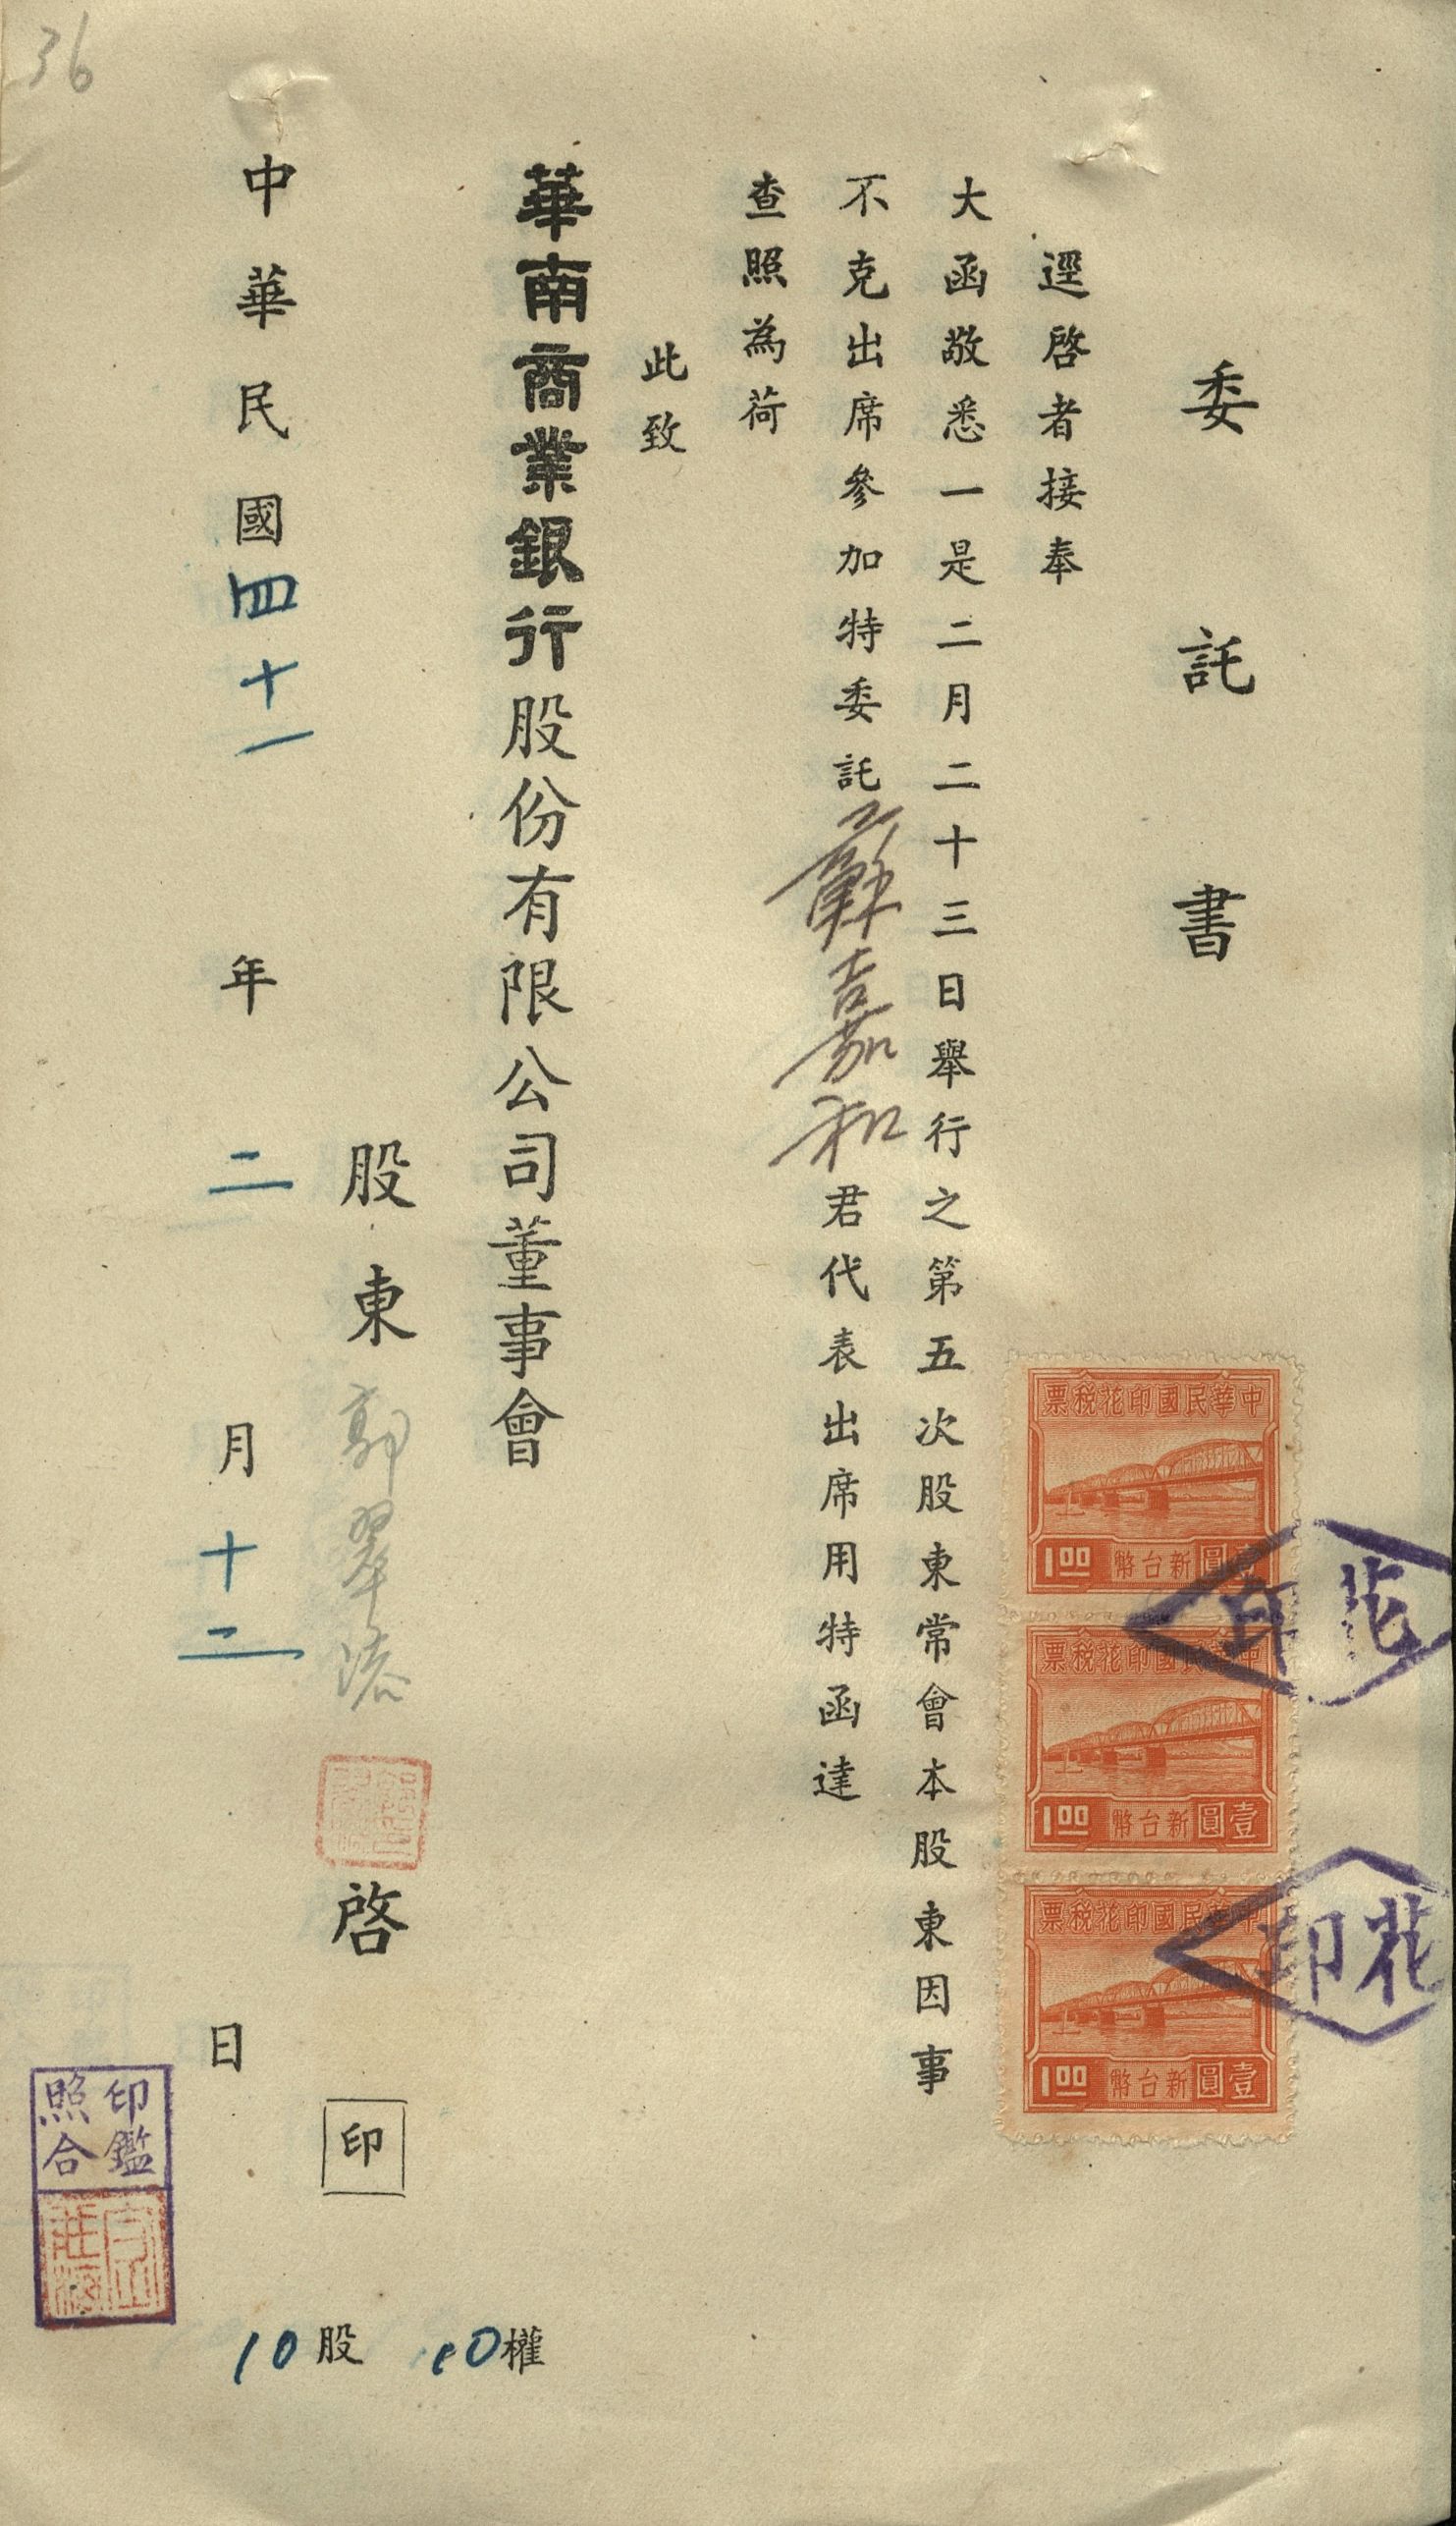 36
委託書
逕啓者接奉
大函敬悉一是二月二十三日舉行之第五次股東常會本股東因事
不克出席參加特委託蘇嘉和君代表出席用特函達
查照為荷
此致
華南商業銀行股份有限公司董事會
股東郭翠 啓 印
中華民國四十一年二月十二日
10股 10權
中華民國印花税票
壹圓新台幣 1.00
中華民國印花税票
壹圓新台幣 1.00
中華民國印花税票
壹圓新台幣 1.00
花印
花印
印鑑照合